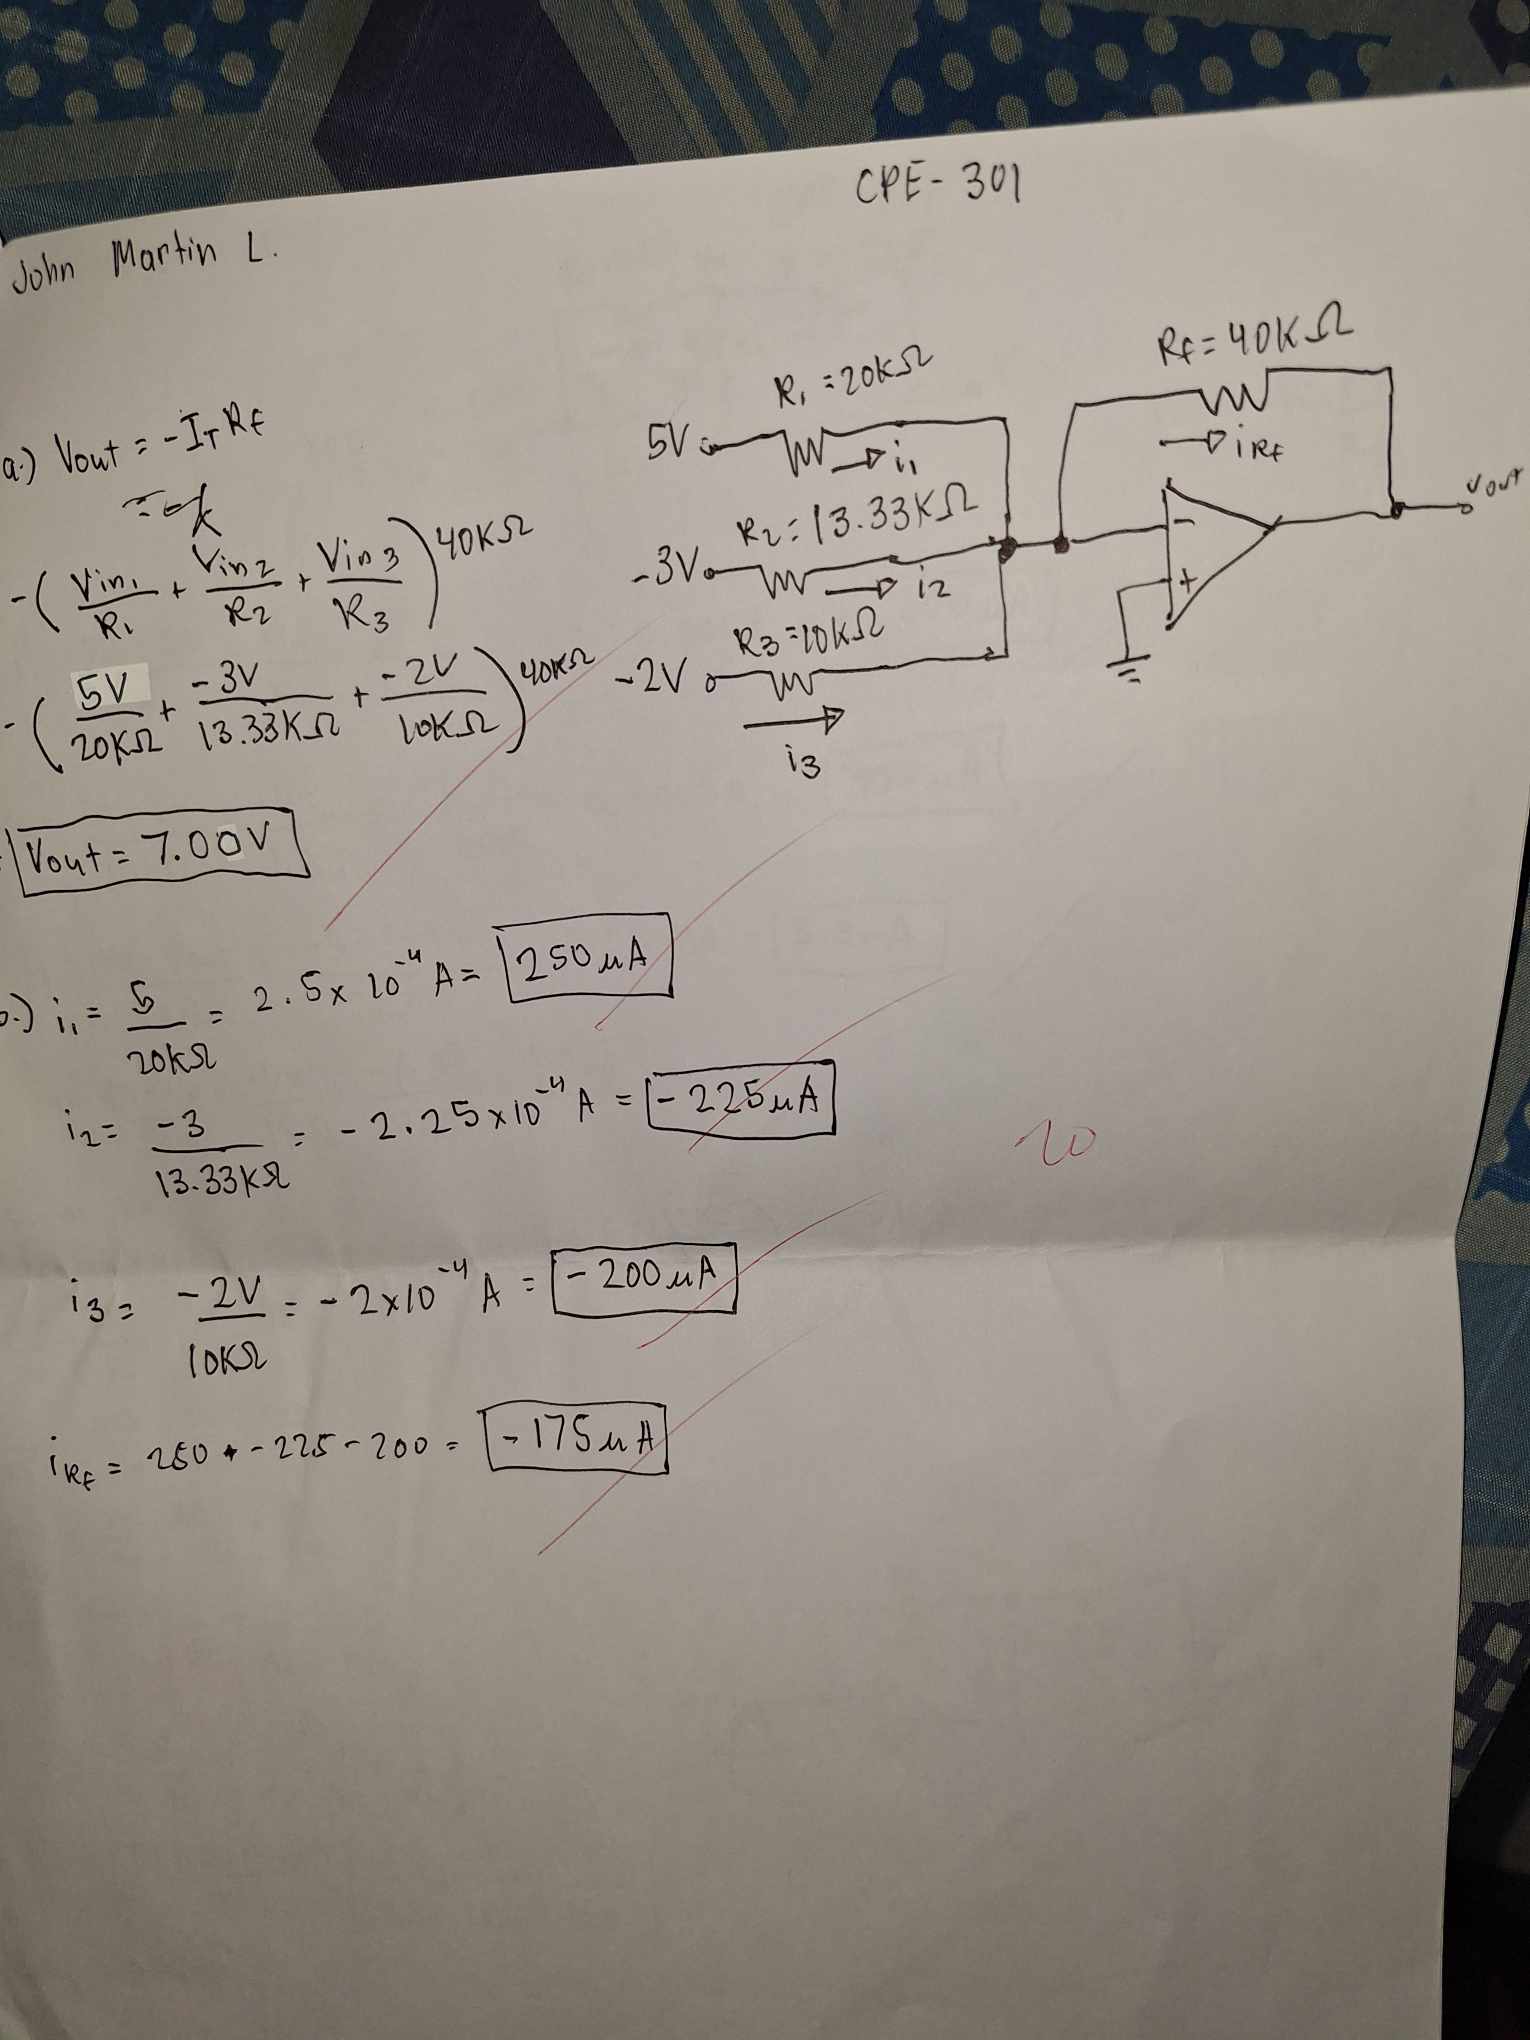 CPE- 301
John Martin L.
a.) Vout = -IT Rf
-( Vin1/R1 + Vin2/R2 + Vin3/R3 ) 40KΩ
-( 5V/20KΩ + -3V/13.33KΩ + -2V/10KΩ ) 40KΩ
Vout = 7.00V
R1 = 20KΩ
5V
i1
R2 = 13.33KΩ
-3V
i2
R3 = 10KΩ
-2V
i3
Rf = 40KΩ
iRf
-
+
Vout
b.) i1 = 5/20KΩ = 2.5 x 10^-4 A = 250 μA
i2 = -3/13.33KΩ = -2.25 x 10^-4 A = -225 μA
20
i3 = -2V/10KΩ = -2x10^-4 A = -200 μA
iRf = 250 + -225 - 200 = -175 μA